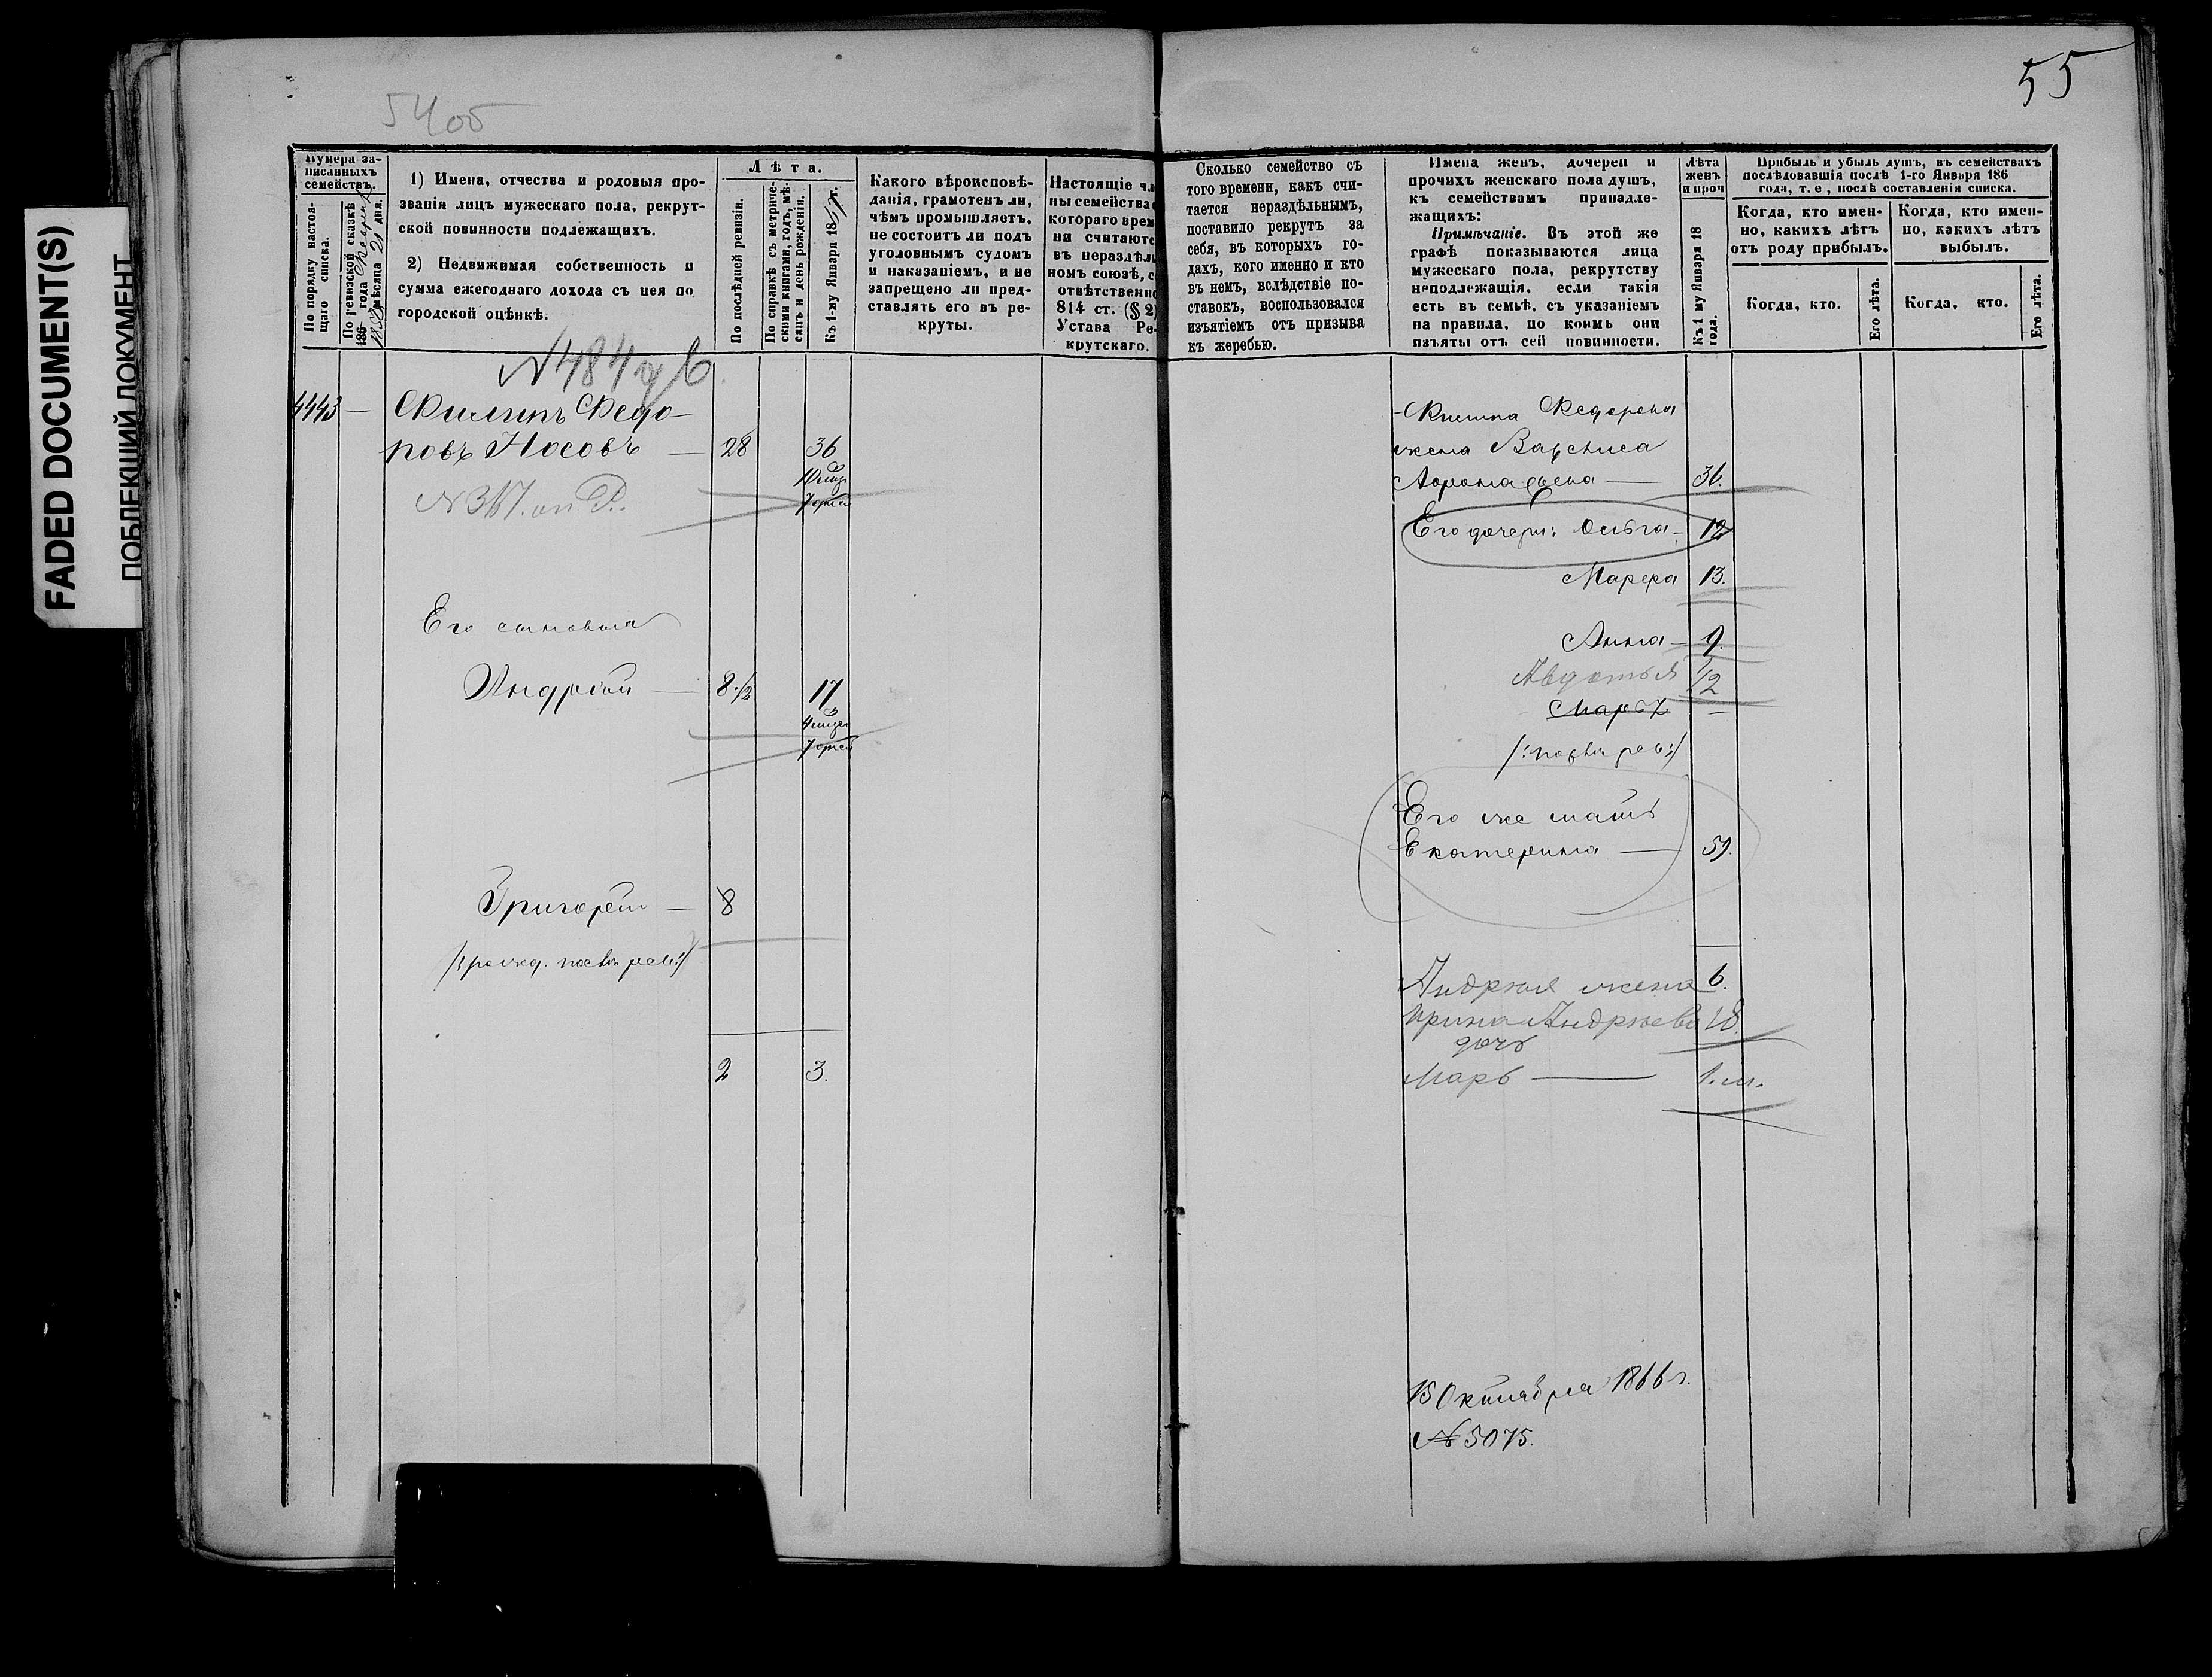 FADED DOCUMENT(S)
ПОБЛЕКШИЙ ДОКУМЕНТ
54об
55
Нумера за-
писанныхъ
семействъ.
По порядку настоя-
щаго списка.
По ревизской сказкѣ
186 года
мѣсяца 21 дня.
1) Имена, отчества и родовыя про-
званія лицъ мужескаго пола, рекрут-
ской повинности подлежащихъ.
2) Недвижимая собственность и
сумма ежегоднаго дохода съ нея по
городской оцѣнкѣ.
Лѣта.
По послѣдней ревизіи.
По справкѣ съ метриче-
скими книгами, годъ, мѣ-
сяцъ и день рожденія.
Къ 1-му Января 18 г.
Какого вѣроисповѣ-
данія, грамотенъ ли,
чѣмъ промышляетъ,
не состоитъ ли подъ
уголовнымъ судомъ
и наказаніемъ, и не
запрещено ли пред-
ставлять его въ ре-
круты.
Настоящіе чл
ны семейства
котораго врем
ни считаютс
въ нераздѣл
номъ союзѣ, с
отвѣтственно
814 ст. (§ 2)
Устава Ре-
крутскаго.
Сколько семейство съ
того времени, какъ счи-
тается нераздѣльнымъ,
поставило рекрутъ за
себя, въ которыхъ го-
дахъ, кого именно и кто
въ немъ, вслѣдствіе по-
ставокъ, воспользовался
изъятіемъ отъ призыва
къ жеребью.
Имена женъ, дочерей и
прочихъ женскаго пола душъ,
къ семействамъ принадле-
жащихъ:
Примѣчаніе. Въ этой же
графѣ показываются лица
мужескаго пола, рекрутству
неподлежащія, если такія
есть въ семьѣ, съ указаніемъ
на правила, по коимъ они
изъяты отъ сей повинности.
Лѣта
женъ
и проч
Къ 1 му Января 18
года.
Прибыль и убыль душъ, въ семействахъ
послѣдовавшія послѣ 1-го Января 186
года, т. е, послѣ составленія списка.
Когда, кто имен-
но, какихъ лѣтъ
отъ роду прибылъ.
Когда, кто имен-
но, какихъ лѣтъ
выбылъ.
Когда, кто.
Его лѣта.
Когда, кто.
Его лѣта.
N484
4443 — Филипъ Федо-
ровъ Носовъ — 28 36
7 дней
Его сыновья
Андрей — 8 1/2 17
7 дней
Григорей — 8
/: рожд. послѣ рев:/
2 3.
Филипа Федорова
жена Варсниса
36.
Его дочери: Ольга — 12
Марфа 13.
Анна — 9.
Авдотья 1/2
Марья —
/: послѣ рев:/
Его же мать
Екатерина — 59.
6.
Андрея жена
Ирина Андреева 18.
дочь
Марь — 1. м.
15 Октября 1866 г.
№ 5075.